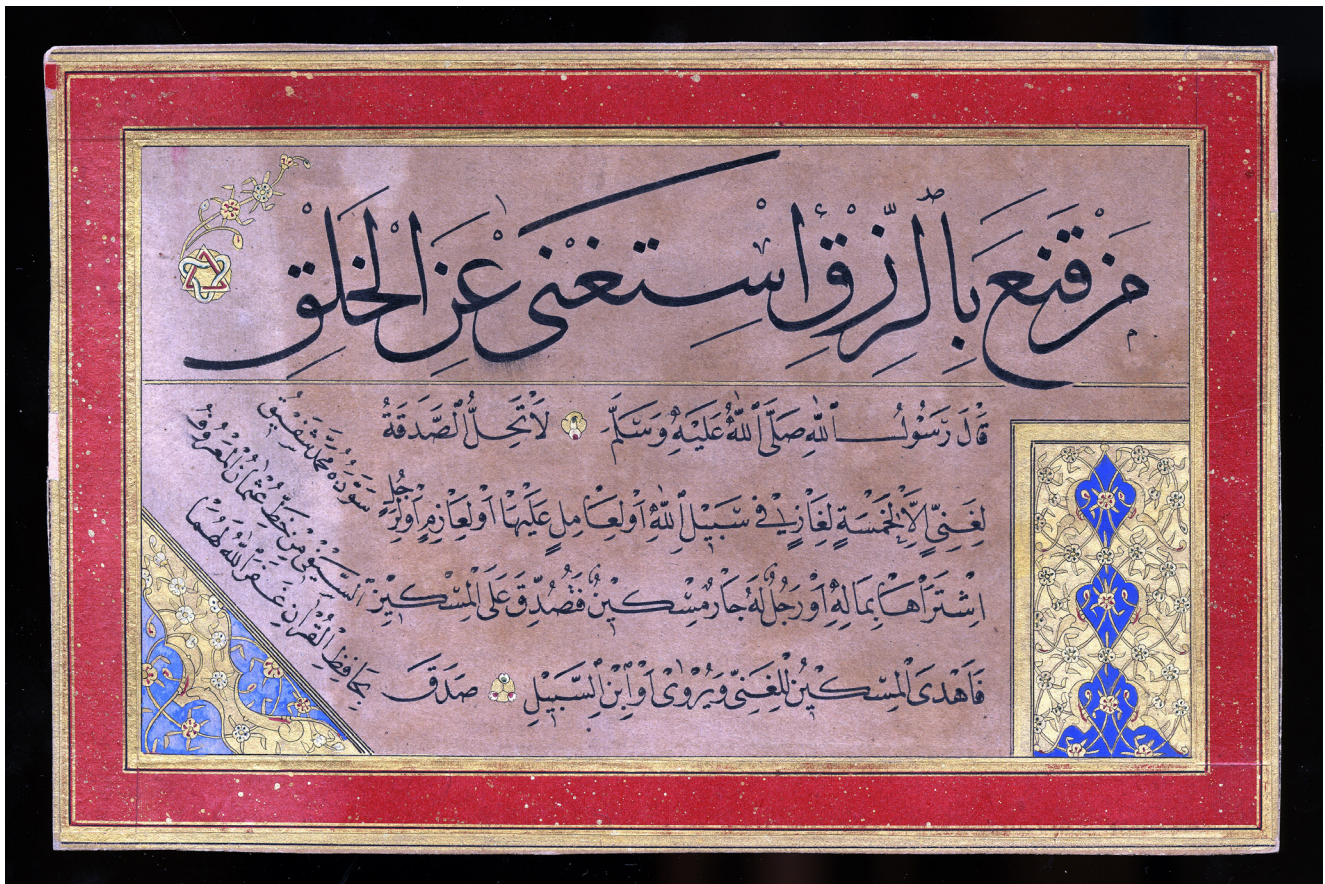 مَنْ قَنَعَ بِالرِّزْقِ اسْتَغْنَى عَنِ الْخَلْقِ
قَالَ رَسُولُ اللّٰهِ صَلَّى اللّٰهُ عَلَيْهِ وَسَلَّمَ لَا تَحِلُّ الصَّدَقَةُ
لِغَنِيٍّ اِلَّا لِخَمْسَةٍ لِغَازٍ فِي سَبِيْلِ اللّٰهِ اَوْ لِعَامِلٍ عَلَيْهَا اَوْ لِغَارِمٍ اَوْ لِرَجُلٍ
اشْتَرَاهَا بِمَالِهِ اَوْ رَجُلٌ لَهُ جَارٌ مِسْكِينٌ فَتُصُدِّقَ عَلَى الْمِسْكِيْنِ
فَاَهْدَى الْمِسْكِيْنُ لِلْغَنِيِّ وَيُرْوٰى اَوِ ابْنِ السَّبِيْلِ صَدَقَ
سَوَّدَهُ مُحَمَّد شَفِيْق
السَّيِّد مِنْ خَطِّ عُثْمَانَ الْمَعْرُوْفِ
بِحَافِظِ الْقُرْاٰنِ غَفَرَ اللّٰهُ لَهُمَا